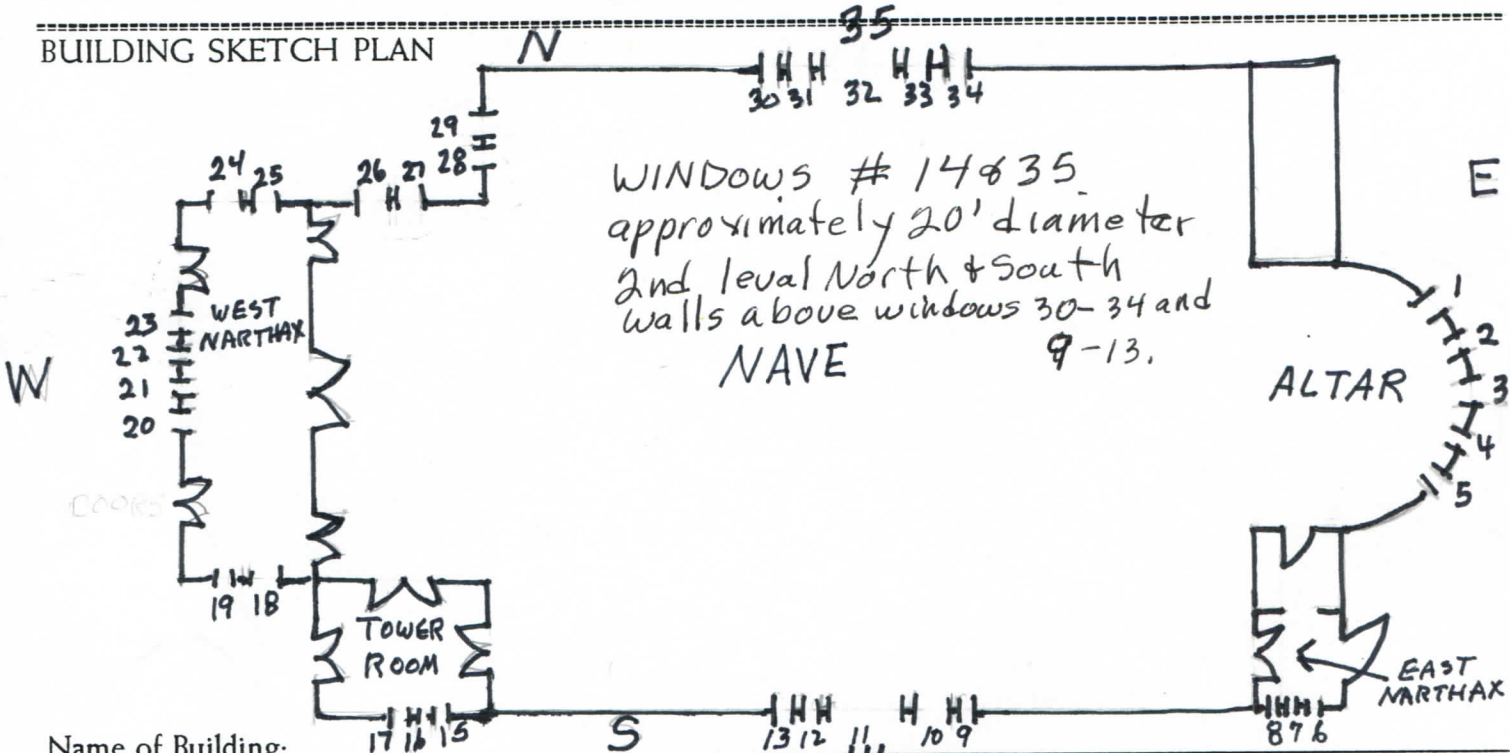 35
BUILDING SKETCH PLAN
N
30 31 32 33 34
29
28
24 25
26 27
WINDOWS # 14&35
approximately 20' diameter
2nd leval North & South
walls above windows 30-34 and
9-13.
E
W
WEST
NARTHAX
23
22
21
20
DOORS
NAVE
ALTAR
1
2
3
4
5
19 18
TOWER
ROOM
17 16 15
S
13 12 11 10 9
EAST
NARTHAX
8 7 6
Name of Building: